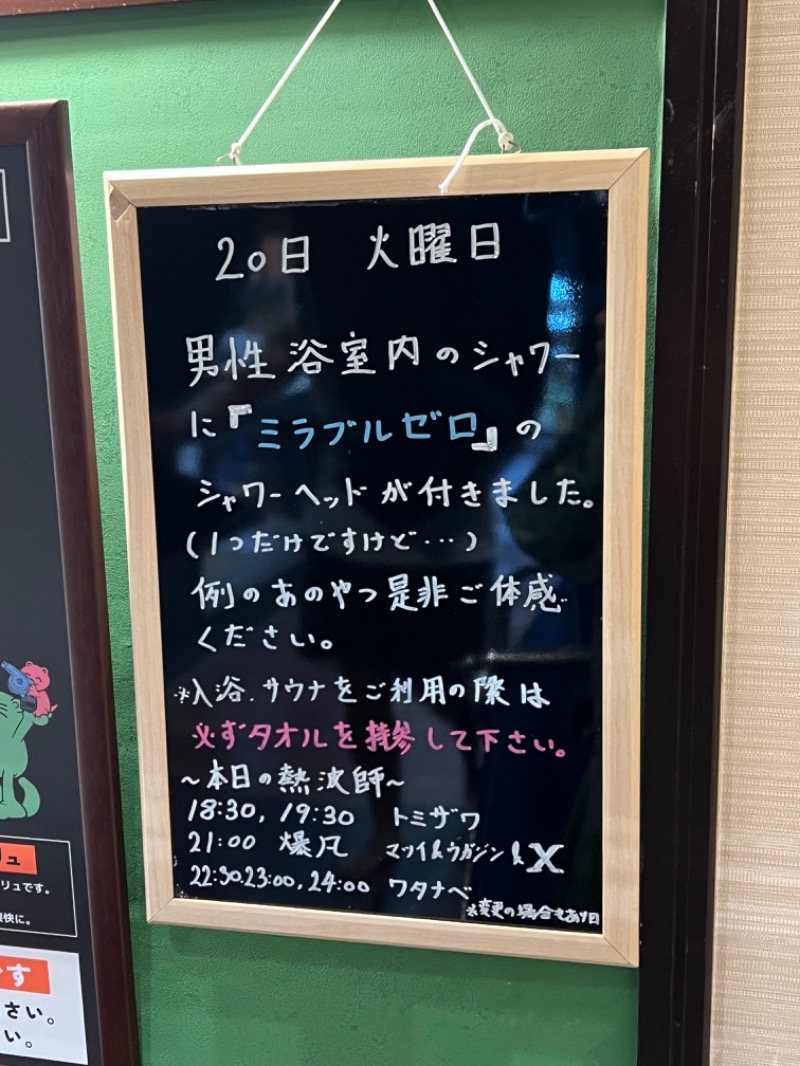 20日 火曜日
男性浴室内のシャワー
に『ミラブルゼロ』の
シャワーヘッドが付きました。
(1つだけですけど…)
例のあのやつ是非ご体感
ください。
※入浴.サウナをご利用の際は
必ずタオルを持参して下さい。
~本日の熱波師~
18:30, 19:30 トミザワ
21:00 爆凡 マツイ&ウガジン&X
22:30.23:00,24:00 ワタナベ
※変更の場合もあり日
リュ
リュです。
快に。
す
さい。
い。